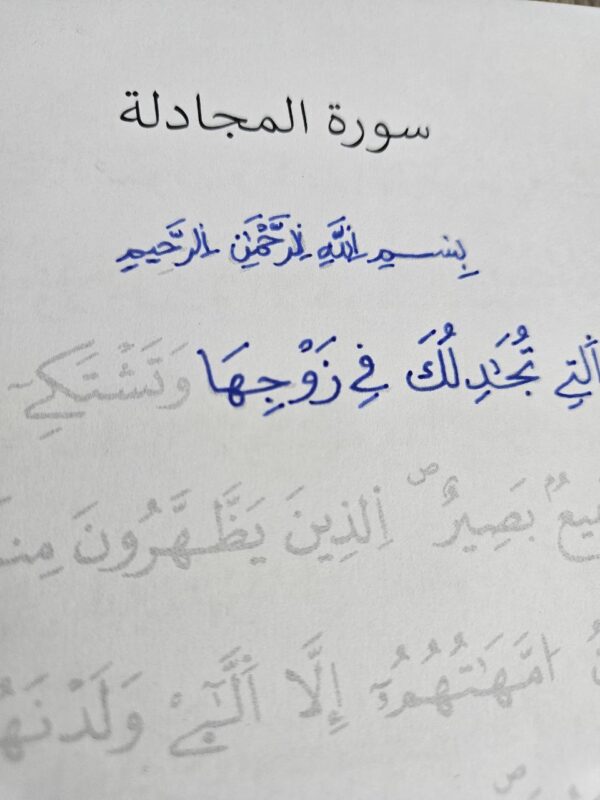 سورة المجادلة
بِسْمِ اِللَّهِ اِلرَّحْمَٰنِ اِلرَّحِيمِ
اَلتِي تُجَٰدِلُكَ فِي زَوْجِهَا وَتَشْتَكِي
بَصِيرٌ ۖ اِلذِينَ يَظَّهَّرُونَ
أُمَّهَٰتُهُمُۥٓ إِلَّا اَلَّٰٓـِٔے وَلَدْنَهُ